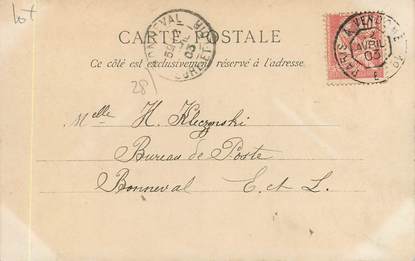 Lot
CARTE POSTALE
Ce côté est exclusivement réservé à l'adresse
28
BONNEVAL
03
PARIS A VENDOME
2
AVRIL
03
Melle H. Kleczynski
Bureau de Poste
Bonneval E. et L.